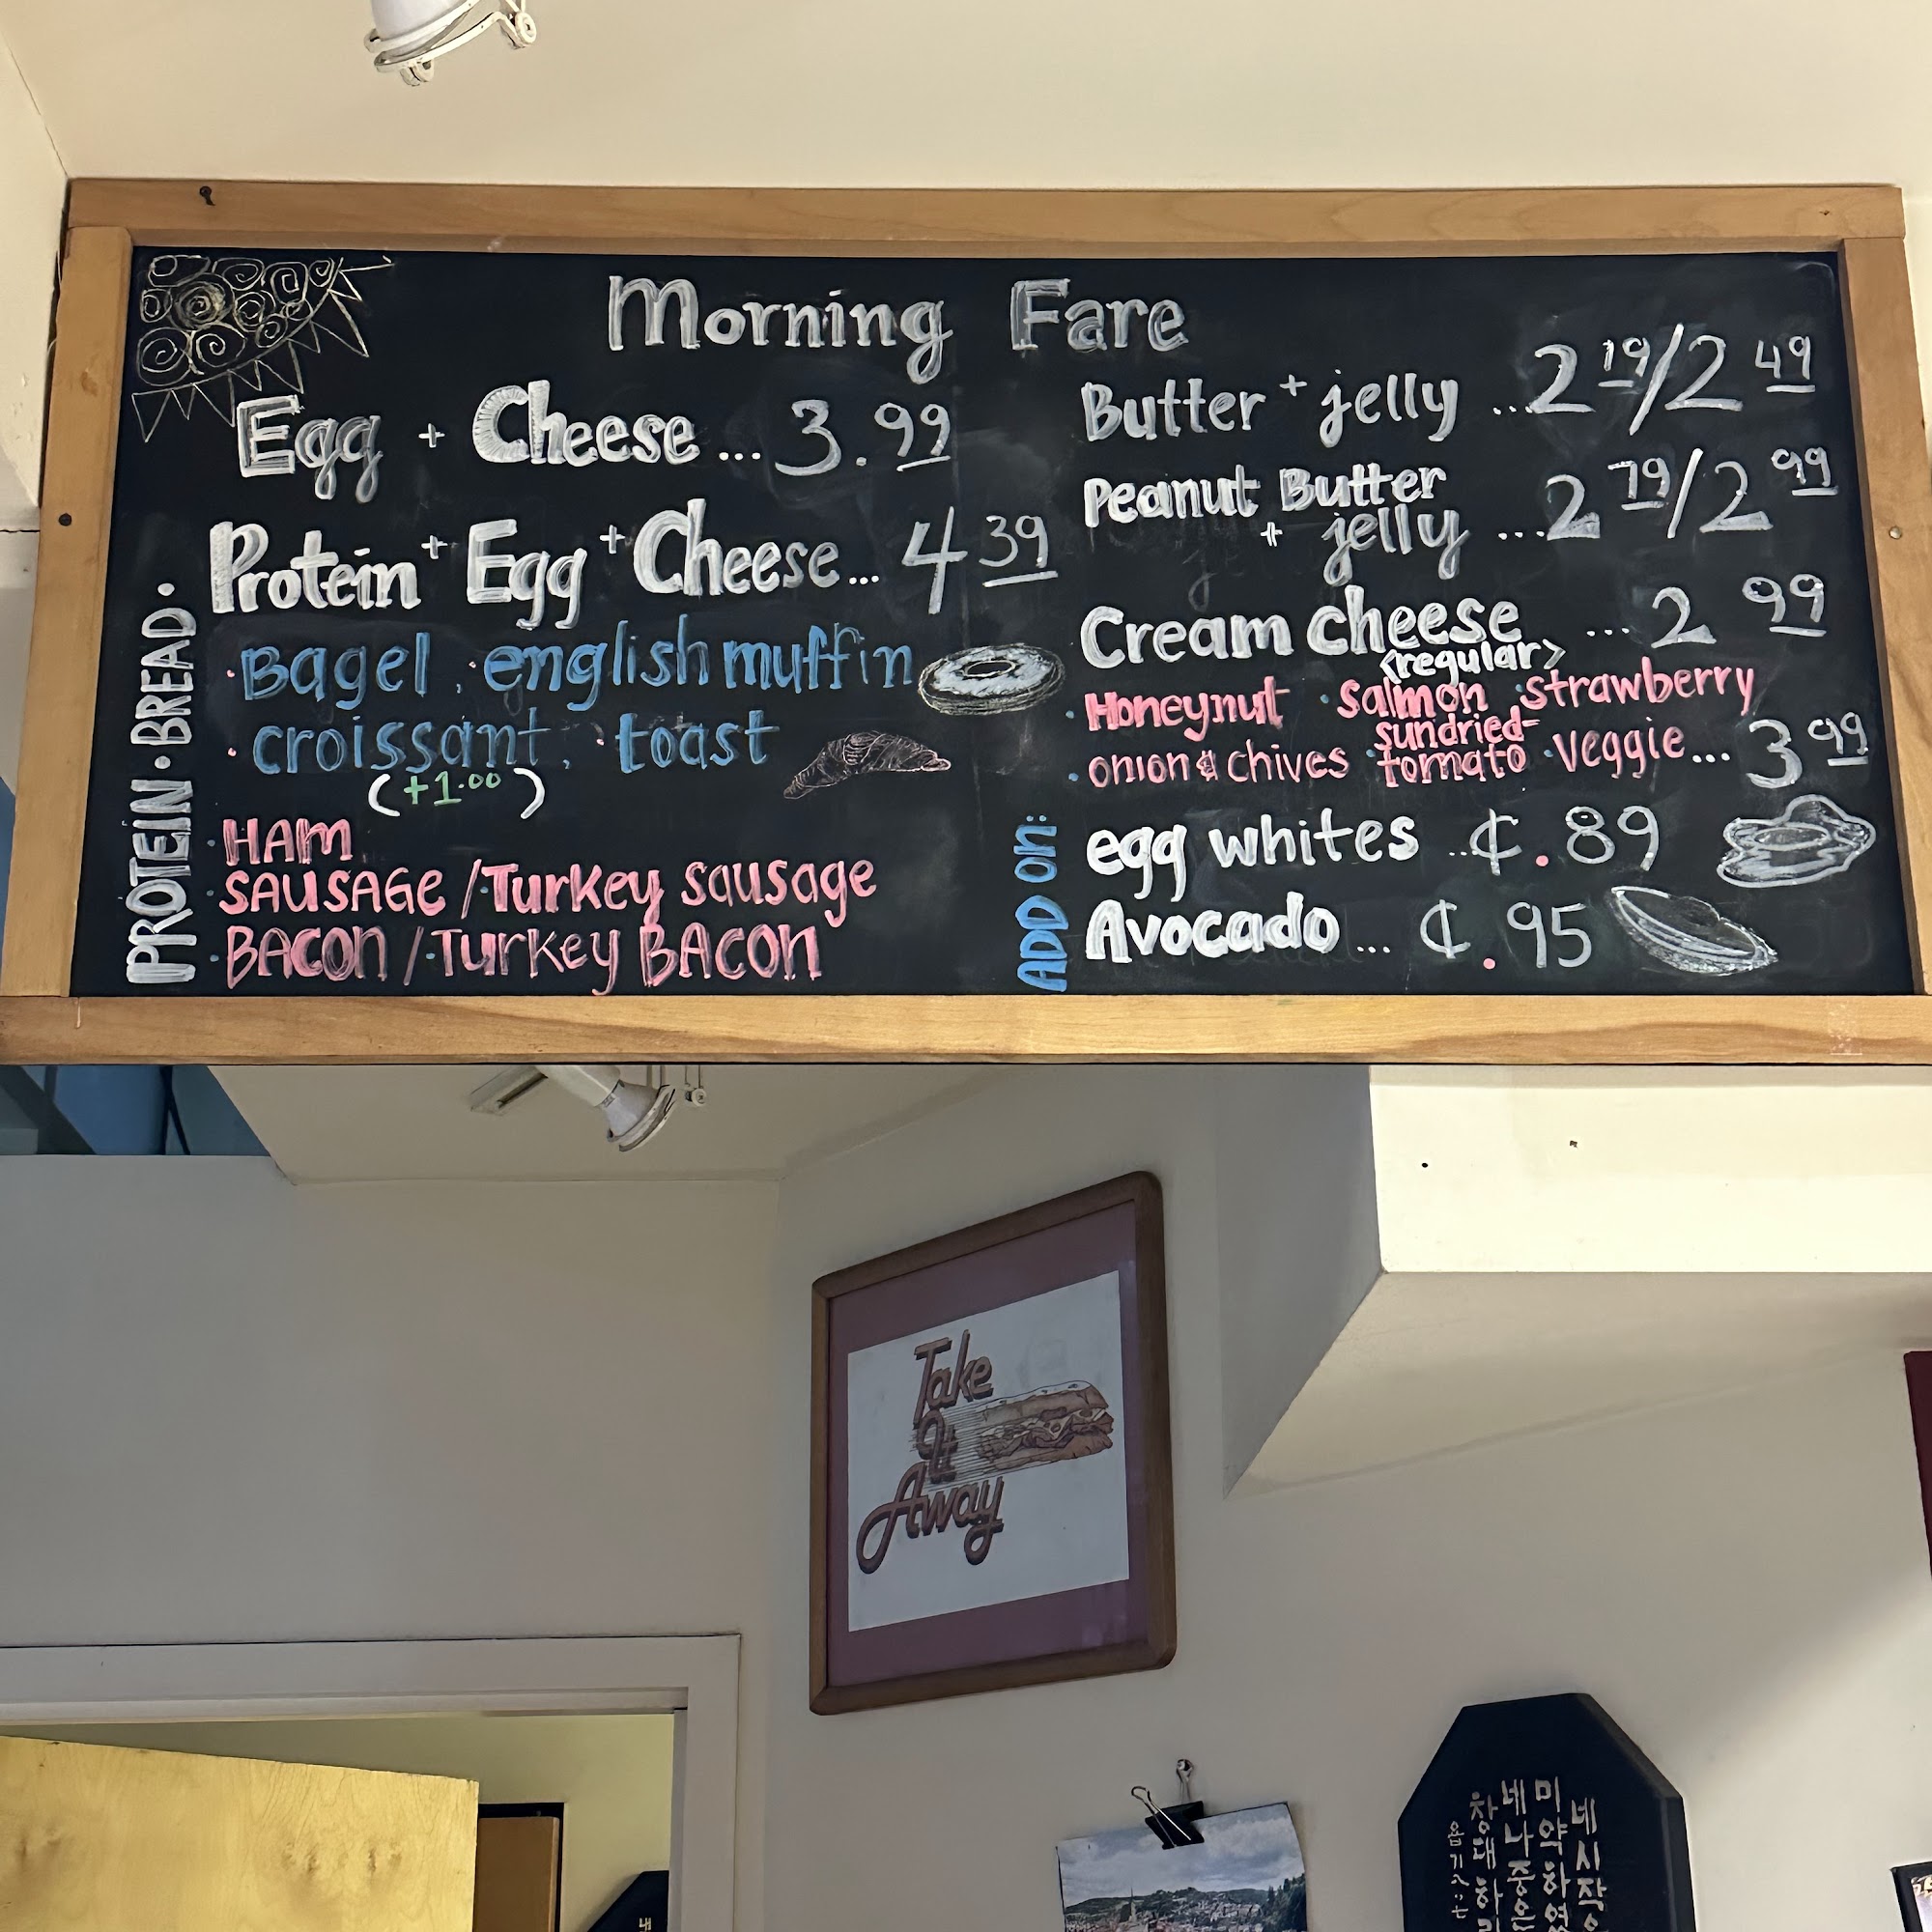 Morning Fare
Egg + Cheese ... 3.99
Protein + Egg + Cheese... 4 39
PROTEIN • BREAD •
• Bagel • english muffin
• croissant • toast
(+1.00)
• HAM
• SAUSAGE / • Turkey sausage
• BACON / • Turkey BACON
Butter + jelly ...2 19/2 49
Peanut Butter
+ jelly ...2 79/2 99
Cream cheese ... 2 99
<regular>
• Honeynut • salmon • strawberry
• onion & chives • sundried tomato • veggie... 3 99
ADD ON:
egg whites ...¢.89
Avocado... ¢.95
Take
It
Away
네 시작
미약하였
네 나중은
창대하리
욥기 八:七